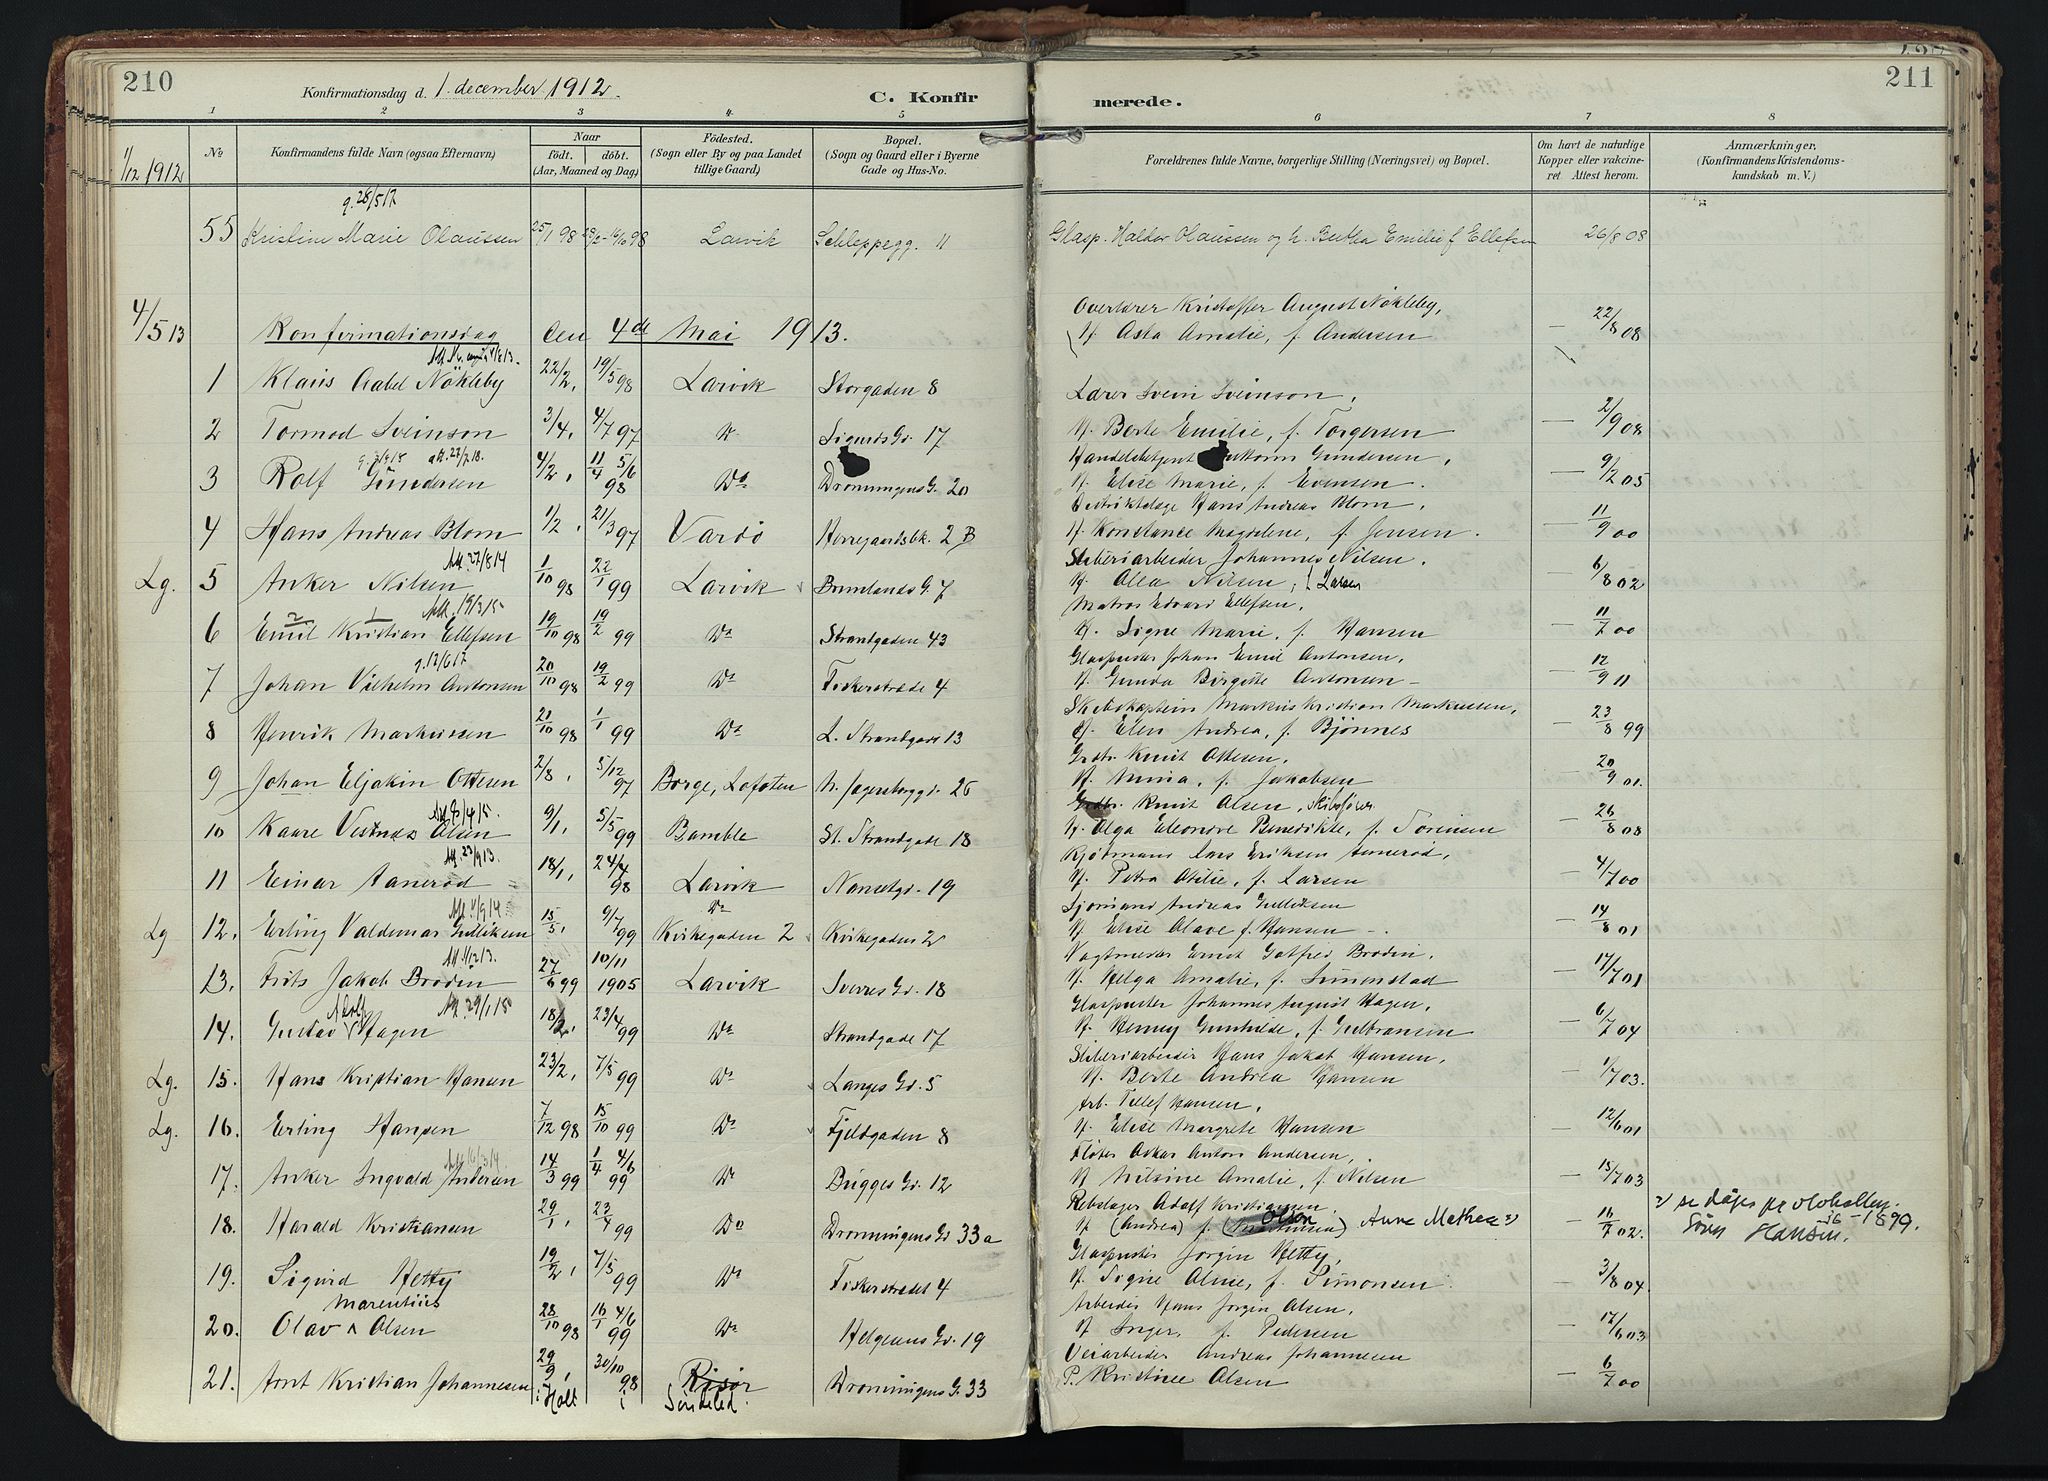 210
Konfirmationsdag d. 1. december 1912.
C. Konfir
merede.
211
1 2 3 4 5 6 7 8
1/12 1912
No
Konfirmandens fulde Navn (ogsaa Efternavn)
Naar
födt. döbt.
(Aar, Maaned og Dag)
Födested.
(Sogn eller By og paa Landet
tillige Gaard)
Bopæl.
(Sogn og Gaard eller i Byerne
Gade og Hus-No.
Forældrenes fulde Navne, borgerlige Stilling (Næringsvei) og Bopæl.
Om havt de naturlige
Kopper eller vakcine-
ret Attest herom.
Anmærkninger.
(Konfirmandens Kristendoms-
kundskab m. V.)
g. 28/5 17
55 Kristine Marie Olaussen 25/1 98 Larvik Schleppegg. 11 Glasp. Haldor Olaussen og h. Emilie f. Ellefsen 26/8 08
4/5 13 Konfirmationsdag den 4de Mai 1913.
Overlærer Kristoffer August Nökleby,
H. Asta Amalie, f. Andersen — 22/8 08
1 Klaus Aabel Nökleby 22/2, 19/5 98 Larvik Storgaden 8
Lærer Svein Sveinson,
2 Tormod Sveinson 3/4, 4/7 97 Do Sigurds Gd. 17 H. Berte Emilie, f. Torgersen — 2/9 08
Handelsbetjent Guttorm Gundersen,
3 Rolf Gundersen 4/2, 11/4 5/6 98 Do Dronningens G. 20 H. Elise Marie, f. Evensen. — 9/2 05
Distriktslæge Hans Andreas Blom,
4 Hans Andreas Blom 1/2, 21/3 97 Vardö Herregaardsbk. 2 B H. Konstance Magdelene, f. Jensen. — 11/9 00
Att. 27/8 14
Sliberiarbeider Johannes Nilsen,
Lg. 5 Anker Nilsen 1/10 98 22/1 99 Larvik Brunlands G. 7 H. Olea Nilsen, f. Larsen — 6/8 02
Att. 19/3 15
Matros Edvard Ellefsen,
6 Emil Kristian Ellefsen 19/10 98 19/2 99 Do Strandgaden 43 H. Signe Marie, f. Hansen — 11/7 00
g. 12/6 17
Glaspuster Johan Emil Antonsen,
7 Johan Vilhelm Antonsen 20/10 98 19/2 99 Do Fiskerstræde 4 H. Gunda Birgitte Antonsen — 12/9 11
Skibskaptein Markus Kristian Markussen,
8 Henrik Markussen 20/10 98 1/1 99 Do L. Strandgade 13 H. Elen Andrea, f. Bjönnes — 23/8 99
Grdbr. Knut Ottesen,
9 Johan Eljakin Ottesen 2/8, 5/12 97 Borge, Lofoten N. Jegersborggd. 26 H. Minna, f. Jakobsen — 20/9 01.
Knut Olsen, Skibsförer
10 Kaare Vestnes Olsen 9/1, 5/5 99 Bamble St. Strandgade 18 H. Olga Eleonore Benedikte, f. Sörensen — 26/8 08
Att. 23/9 13.
Kjöbmand Lars Eriksen Aaneröd,
11 Einar Aaneröd 18/1, 98 Larvik Nansetgd. 19 H. Petra Otilie, f. Larsen — 4/7 00
Sjömand Andreas Gulliksen
Lg 12. Erling Valdemar Gulliksen 15/5, 9/7 99 Do Kirkegaden 2 Kirkegaden 2 H. Elise Olave f. Hansen — 14/8 01
Vagtmester Ernst Gotfred Brodin,
13. Frits Jakob Brodin 27/6 99 10/11 1905 Larvik Sverres Gd. 18 H. Helga Amalie, f. Simenstad — 17/7 01
Att. 29/1 15
Glaspuster Johannes August Hagen,
14. Gustav Adolf Hagen 18/2, 23/4 99 Do Strandgade 17 H. Henny Gunhilde, f. Gulbransen — 6/7 04
Sliberiarbeider Hans Jakob Hansen,
Lg. 15. Hans Kristian Hansen 23/2, 7/5 99 Do Langes Gd. 5 H. Berte Andrea Hansen — 1/7 03.
Arb. Tellef Hansen,
Lg. 16. Erling Hansen 7/12 98 15/10 99 Do Fjeldgaden 8 H. Elise Margrete Hansen — 12/6 01
Flöter Oskar Anton Andersen,
17. Anker Ingvald Andersen 14/3 99 1/4 4/6 99 Do Brigges Gd. 12 H. Nilsine Amalie, f. Nilsen — 15/7 03
Rebslager Adolf Kristiansen,
18. Harald Kristiansen 29/1, 23/4 99 Do Dronningens Gd 33 a H. (Andrea) f. Olsen — 16/7 02.
Glaspuster Jörgen Hetty,
19. Sigurd Hetty 19/2, 7/5 99 Do Fiskerstrædet 4 H. Signe Oline, f. Simonsen — 3/8 04
Arbeider Hans Jörgen Olsen,
20. Olav Marentius Olsen 28/10 98 16/1 4/6 99 Do Helgesens Gd. 19 H. Inger, f. Pedersen — 17/6 03
Veiarbeider Andreas Johannesen
21. Arnt Kristian Johannesen 29/9, 30/10 98 Risör Dronningens G. 33 P. Kristine Olsen — 6/7 00
i Holt i Söndeled.